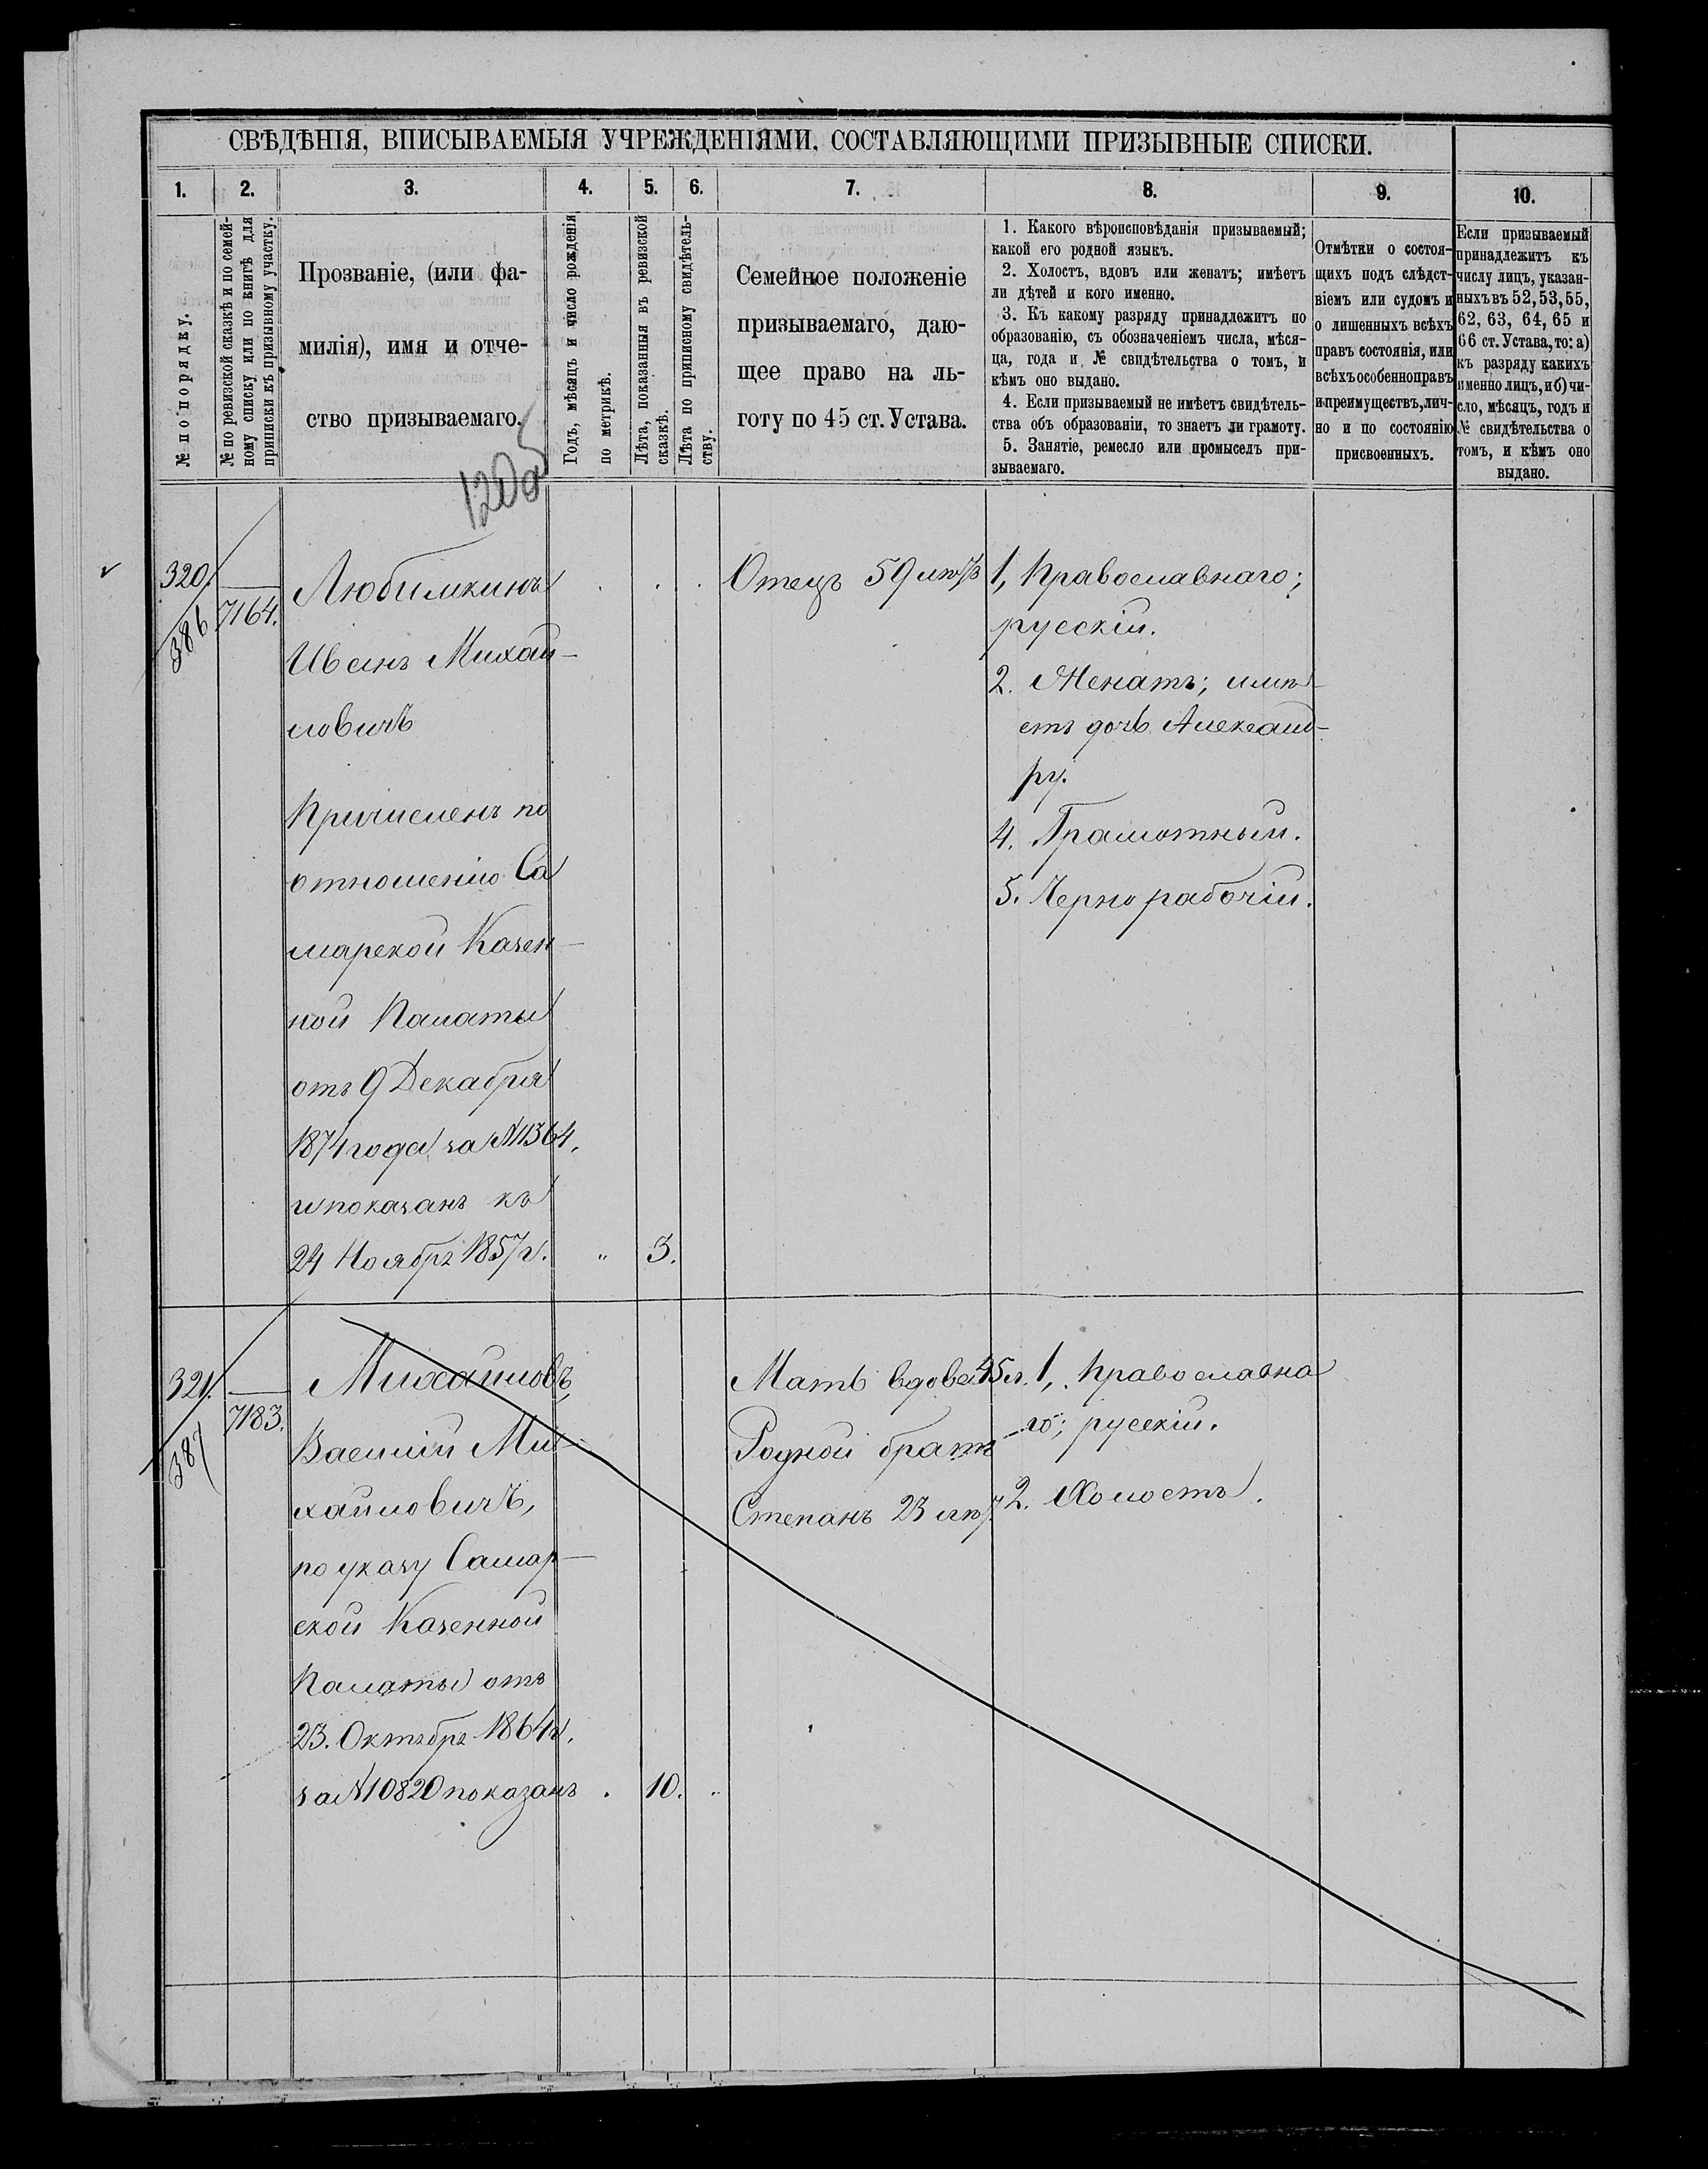 СВѢДѢНІЯ, ВПИСЫВАЕМЫЯ УЧРЕЖДЕНІЯМИ, СОСТАВЛЯЮЩИМИ ПРИЗЫВНЫЕ СПИСКИ.
1.
2.
3.
4.
5.
6.
7.
8.
9.
10.
№ по порядку.
№ по ревизской сказкѣ и по семей-
ному списку или по книгѣ для
приписки къ призывному участку.
Прозваніе, (или фа-
милія), имя и отче-
ство призываемаго.
Годъ, мѣсяцъ и число рожденія
по метрикѣ.
Лѣта, показанныя въ ревизской
сказкѣ.
Лѣта по приписному свидѣтель-
ству.
Семейное положеніе
призываемаго, даю-
щее право на ль-
готу по 45 ст. Устава.
1. Какого вѣроисповѣданія призываемый;
какой его родной языкъ.
2. Холостъ, вдовъ или женатъ; имѣетъ
ли дѣтей и кого именно.
3. Къ какому разряду принадлежитъ по
образованію, съ обозначеніемъ числа, мѣся-
ца, года и № свидѣтельства о томъ, и
кѣмъ оно выдано.
4. Если призываемый не имѣетъ свидѣтель-
ства объ образованіи, то знаетъ ли грамоту.
5. Занятіе, ремесло или промыселъ при-
зываемаго.
Отмѣтки о состоя-
щихъ подъ слѣдст-
віемъ или судомъ и
о лишенныхъ всѣхъ
правъ состоянія, или
всѣхъ особенно правъ
и преимуществъ, лич-
но и по состоянію
присвоенныхъ.
Если призываемый
принадлежитъ къ
числу лицъ, указан-
ныхъ въ 52, 53, 55,
62, 63, 64, 65 и
66 ст. Устава, то: а)
къ разряду какихъ
именно лицъ, и б) чи-
сло, мѣсяцъ, годъ и
№ свидѣтельства о
томъ, и кѣмъ оно
выдано.
120об
320.
386
7164.
Любимкинъ
Иванъ Михай-
ловичъ
Причисленъ по
отношенію Са
марской Казен-
ной Палаты
отъ 9 Декабря
1874 года за №11364,
и показанъ къ
24 Ноября 1857 г. " 3.
Отецъ 59 лѣтъ
1, Православнаго;
русскій.
2. Женатъ; имѣ-
етъ дочь Александ-
ру.
4. Грамотный.
5. Чернорабочій.
321.
387
7183.
Михайловъ,
Василій Ми-
хайловичъ,
по указу Самар-
ской Казенной
Палаты отъ
23. Октября 1864 г.
за №10820 показанъ . 10. "
Мать вдова 45 л.
Родной братъ
Степанъ 23 лѣт.
1, Православна
го; русскій.
2. Холостъ.